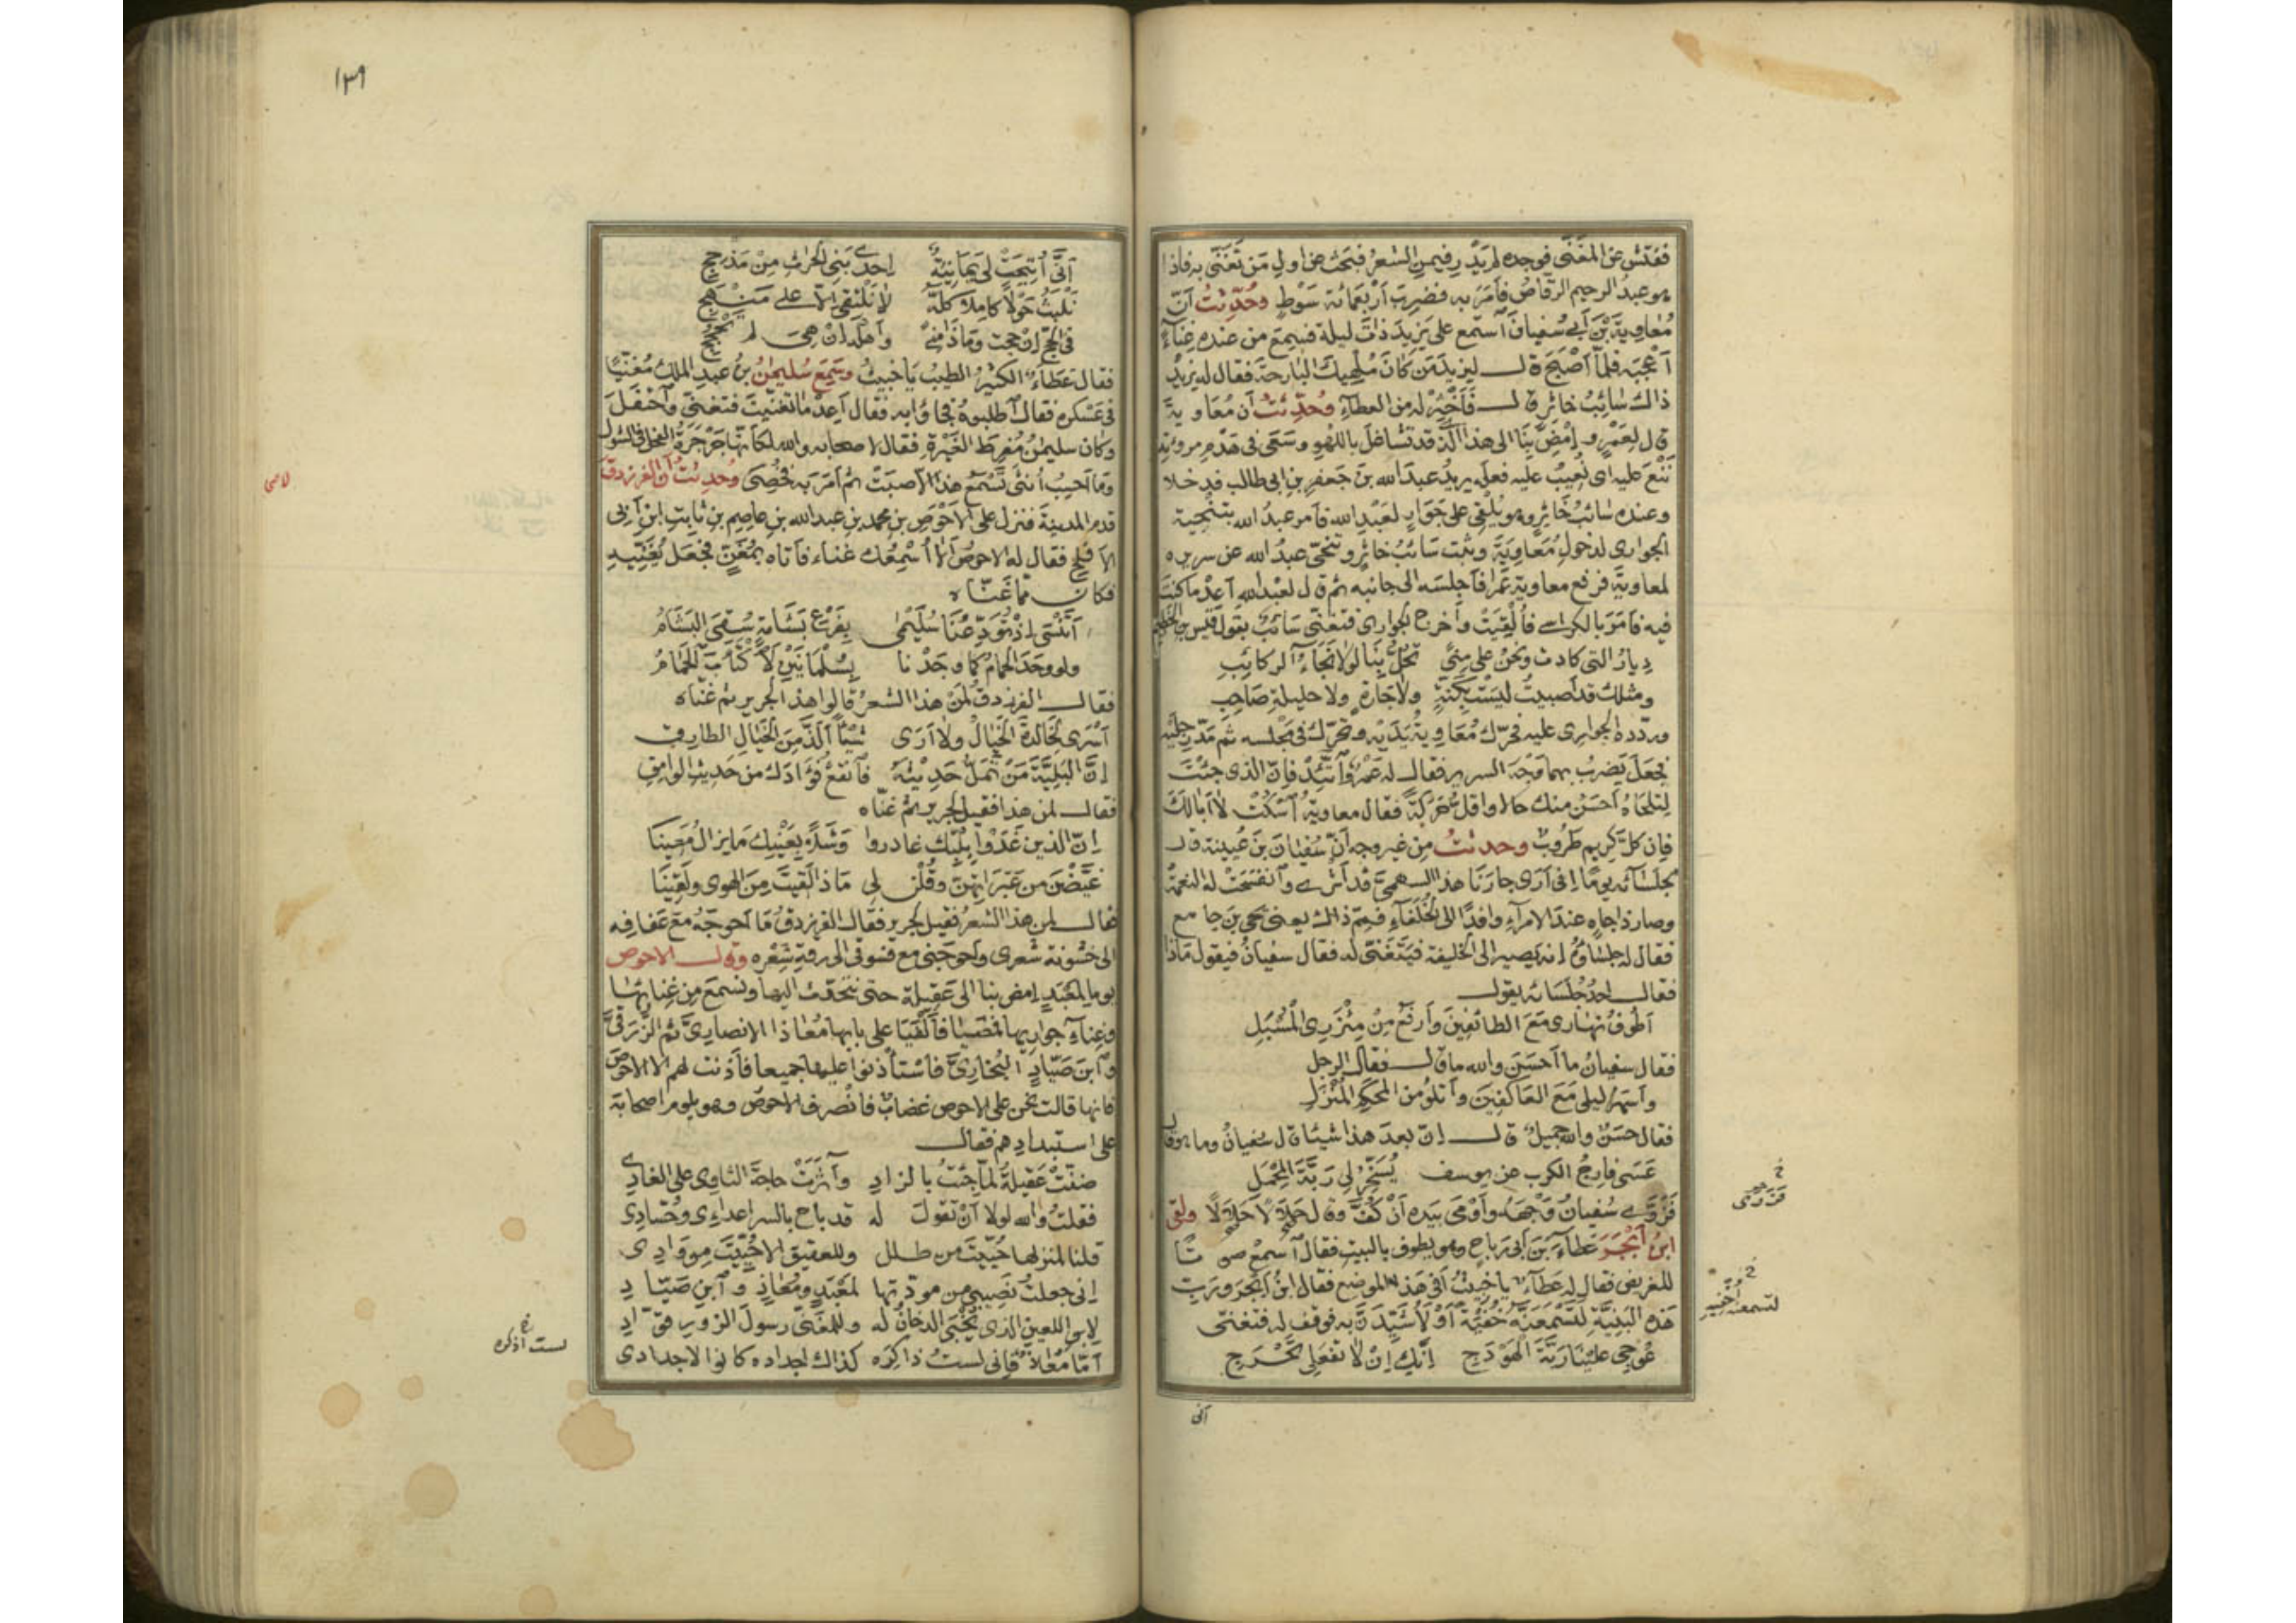 ففتش عن المغنى فوجده لم يدر فيمن الشعر فبحث عن اول من تغنى به فاذا
هو عبد الرحيم الرقاص فأمر به فضرب أربعمائة سوط وحُدّثتُ أنّ
مُعاوية بْنَ أبى سُفيانَ آستمع على يزيدَ ذاتَ ليلة فسمع من عنده غِناءً
أعْجَبَه فلمّا أصْبَحَ قال ليزيدَ مَن كانَ مُلْهِيكَ البارحةَ فقال له يزيدُ
ذاك سائِبُ خاثِر قال فَأَخْثِرْ له من العطآء وحُدِّثتُ أن مُعاوية
قال لعَمْرٍو إمْضِ بِنَا الى هذا الّذى قد تشاغل باللهو وسَعَى فى هَدْمِ مروئته
نَنْعَ عليه اى نُعِيبُ عليه فعلَه يريدُ عبدَ الله بنَ جَعفرِ بنِ ابى طالب فدخلا
وعنده سَائبُ خاثرٍ وهو يُلْقى على جَوَارٍ لعَبْدِ الله فأمر عبدُ الله بتنْحِيَة
الجوارى لدخولِ مُعَاوِيَةَ وثبت سَائبُ خاثرٍ وتنحّى عبدُ الله عن سريره
لمعاويةَ فرفع معاويةُ عَمْرا فأجلسَه الى جانبه ثم قال لعبْد الله أعِدْ ما كنتَ
فيه فأمَرَ بالكراسى فألقِيَتْ وأخرج الجوارى فتغنّى سَائبٌ بقول قيس بن الخطيم
دِيارُ التى كادت ونحنُ على مِنىً تحُلُّ بِنَا لولا نَجَاءُ الركائبِ
ومثلك قد أصبيتُ ليسَتْ بكَنّةٍ ولا جَارةٍ ولا حليلةِ صَاحِبِ
وردّده الجوارى عليه فحرّك مُعَاوِيَةُ يَدَيْه وتحرّك فى مَجْلسه ثم مَدّ رِجلَيْه
فجعل يَضربُ بهما وَجْهَ السرير فقال له عَمْرٌو آتّئِدْ فإنّ الذى جئتَ
لِتَلحَاهُ أحسَنُ منك حالا واقلُّ حَرَكَةً فقال معاويةُ آسْكُتْ لا أبا لَكَ
فإن كلَّ كريم طَرُوبٌ وحدثتُ مِن غير وجه أنّ سُفيانَ بنَ عُيينة قال
لجلسَآئه يومًا إنى أرَى جارَنَا هذا السهميَّ قد أثرى وآنفسَحَتْ له النعمةُ
وصار ذا جاهٍ عندَ الامرآءِ وافدًا الى الخُلفَآءِ فمِمّ ذاك يعنى يحيى بنَ جامع
فقال له جلسَاؤُه إنه يصير الى الخليفة فيَتغنّى له فقال سفيانُ فيقول ماذا
فقال احدُ جُلَسَائه يقول
أطُوفُ نهارى مَعَ الطائفِينَ وأرفَعُ مِنْ مِئْزَرِى المُسْبَلِ
فقال سفيانُ ما أحسَنَ والله ما قال فقال الرجل
وأسْهَرُ ليلى مَعَ العَاكِفِينَ وأتلُو من المحكَمِ المُنْزَلِ
فقال حسَنٌ واللهِ جميلٌ قال إنّ بعدَ هذا شيئا قال سفيانُ وما هو قال
عَسَى فارِجُ الكربِ عن يوسف يُسَخِّرُ لِى رَبّةَ المِحْمَلِ
فَزَوَى سُفيانُ وَجْهَهُ وأوْمَى بيَده أنْ كُفَّ وقال حَلَالًا حَلَالًا ولقى
ابنُ أبْجَرَ عَطآءَ بْنَ ابى رَباح وهو يطوف بالبيتِ فقال آسمعْ صوتًا
للغريض فقال له عَطآءٌ يا خبِيثُ أفى هَذ الموضع فقال ابنُ أبْجَرَ وربِّ
هَذه البَنِيَّة لتَسْمَعَنّه خُفْيَةً أوْ لأُشَيِّدَنَّ به فوقف له فتغنّى
عُوجِى علَيْنَا رَبّةَ الهَوْدَجِ إنّكِ إنْ لا تفعَلِى تَحْرَجِ
فزوى
لتسمعنه خفية
أنى
١٣٩
أنَّى أُتِيحَتْ لى يَمانِيَةٌ إحْدَى بَنِى الحٰرثِ مِنْ مَذْحِجِ
نَلْبَثُ حَوْلًا كامِلا كلَّهُ لا نَلْتَقى إلّا على مَنْهَجِ
فى الحجِّ إنْ حجت وماذا مِنًى وأهلُه إنْ هِىَ لم تحْجُجِ
فقال عَطَآءٌ الكثيرُ الطيبُ يا خبيثُ وسَمِعَ سُليمٰنُ بنُ عبدِ الملكِ مُغنّيًا
فى عَسْكره فقال آطلبوهُ فجاؤا به فقال أعِدْ ما تغنّيتَ فتغنى وآحتفَلَ
وكان سليمٰنُ مُفرِطَ الغَيْرةِ فقال لاصحابه والله لكأنّها جَرْجَرَةُ الفحل فى الشول
وما أحْسِبُ أُنثَى تَسْمَعُ هذا الا صبَتْ ثم أمَرَ به فخُصِىَ وحُدثتُ أنّ الفرزدق
قدم المدينةَ فنزل على الأحْوَصِ بن محمدِ بنِ عبد الله بنِ عاصِم بنِ ثابتِ ابنِ أبى
الأقْلح فقال له الاحوصُ ألا أُسْمِعُك غناء فأتاه بمُغَنٍّ فجعل يُغَنِّيه
فكان ممّا غنّاه
أتَنْسَى إذْ تُوَدِّعُنَا سُلَيْمَى بِفَرْعِ بَشَامَةٍ سُقِىَ البَشَامُ
ولو وجَدَ الحَمامُ كما وجَدْنا بِسُلْمَانَيْنِ لَاكْتَأبَ الحَمَامُ
فقال الفرزدق لمَنْ هذا الشعرُ قالوا هذا لجرير ثم غنّاه
أسْرَى لخالدةَ الخَيالُ ولا أرَى شيئًا ألَذَّ مِنَ الخَيَالِ الطارِقِ
إنَّ البَلِيَّةَ مَنْ تَمَلُّ حَدِيْثَهُ فآنقَعْ فُؤَادَك من حَدِيثِ الوامِقِ
فقال لمن هذا فقيل لجرير ثم غنّاه
إنّ الذينَ غَدَوْا بِلُبِّكَ غادروا وَشَلًا بِعَيْنِك ما يزالُ مَعِينَا
غيَّضْنَ من عَبَرَاتِهِنّ وقُلْنَ لى ماذا لَقيتَ مِنَ الهوى ولَقِينَا
فقال لمن هذا الشعرُ فقيل لجرير فقال الفرزدقُ مَا أحوجَهُ مَعَ عَفافِه
الى خشُونة شعرى وأحوجَنى مع فسوقى الى رقةِ شِعْره وقال الاحوص
يوما لمعْبَدٍ إمض بنا الى عَقِيلةَ حتى نتحدّث اليها ونسمعَ مِن غنائها
وغِناءِ جواريها فمضيا فألْفَيَا على بابها مُعاذا الانصارِىَّ ثم الزُّرَقىَّ
وآبْنَ صَيّادٍ النجّارىَّ فاستأذنوا عليها جميعا فأذنت لهم الا الاحوصَ
فإنها قالت نحن على الاحوص غِضابٌ فانْصرف الاحوصُ وهو يلوم أصحابَه
على استبدادِهم فقال
ضَنّتْ عَقِيلةُ لمّا جئتُ بالزادِ وآثرَتْ حاجةَ الثاوِى على الغادِى
فقلتُ والله لولا أنْ تقولَ له قد باح بالسر أعداءِى وحُسّادِى
قلنا لمنزلها حُيّيتَ من طلل وللعقيق ألا حُيّيتَ مِن وَادِى
إنى جعلتُ نَصِيبى من مودّتها لمَعْبَدٍ ومُعَاذٍ وآبنِ صَيّادِ
لابن اللعين الذى يُخْبَى الدخانُ له وللمغنّى رسولَ الزورِ قوّادِ
أمّا مُعَاذٌ فإنى لستُ ذاكِرَه كذاك اجداده كانوا لاجدادى
لست اذكره